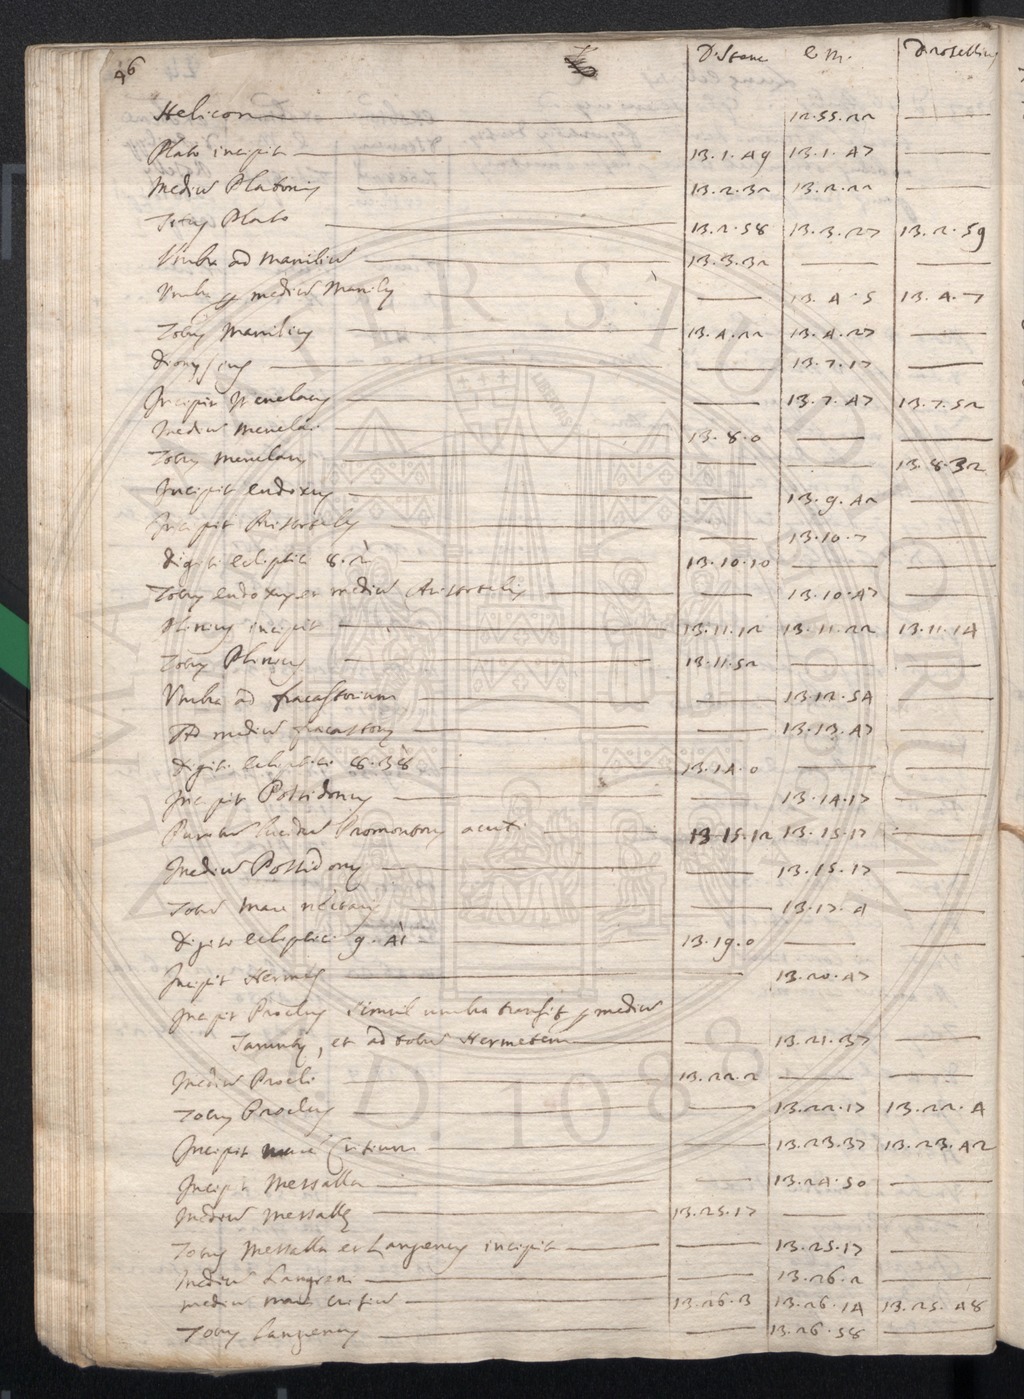 46 D. Stanc E. M. D. Rosellin
Helicon 12.55.22
Plato incipit 13.1.49 13.1.47
Mediu Platonis 13.2.32 13.2.22
Totus Plato 13.2.58 13.3.27 13.2.59
Umbra ad Maniliu 13.3.32
Umbra p mediu Manilij 13.4.5 13.4.7
Totus Manilius 13.4.22 13.4.27
Dionysius 13.7.17
Incipit Menelaus 13.7.47 13.7.52
Mediu Menelai 13.8.0
Totus Menelaus 13.8.32
Incipit Eudoxus 13.9.42
Incipit Aristoteles 13.10.7
Digiti ecliptici 8.2 13.10.10
Totus Eudoxus et mediu Aristotelis 13.10.47
Plinius incipit 13.11.12 13.11.22 13.11.14
Totus Plinius 13.11.52
Umbra ad Fracastorium 13.12.54
Ad mediu Fracastorij 13.13.47
Digiti ecliptici 8.38 13.14.0
Incipit Possidonius 13.14.17
Punctu lucidu Promontorij acuti 13.15.12 13.15.17
Mediu Possidonij 13.15.17
Totu Mare 13.17.4
Digiti ecliptici 9.41 13.19.0
Incipit Hermes 13.20.47
Incipit Proclus simul umbra transit p mediu
et ad totu Hermetem 13.21.37
Mediu Procli 13.22.2
Totus Proclus 13.22.17 13.22.4
Incipit mare Crisium 13.23.37 13.23.42
Incipit Messalla 13.24.50
Mediu Messallę 13.25.17
Totus Messalla et Langrenus incipit 13.25.17
Mediu Langreni 13.26.2
Mediu mare Crisiu 13.26.3 13.26.14 13.25.48
Totus Langrenus 13.26.58